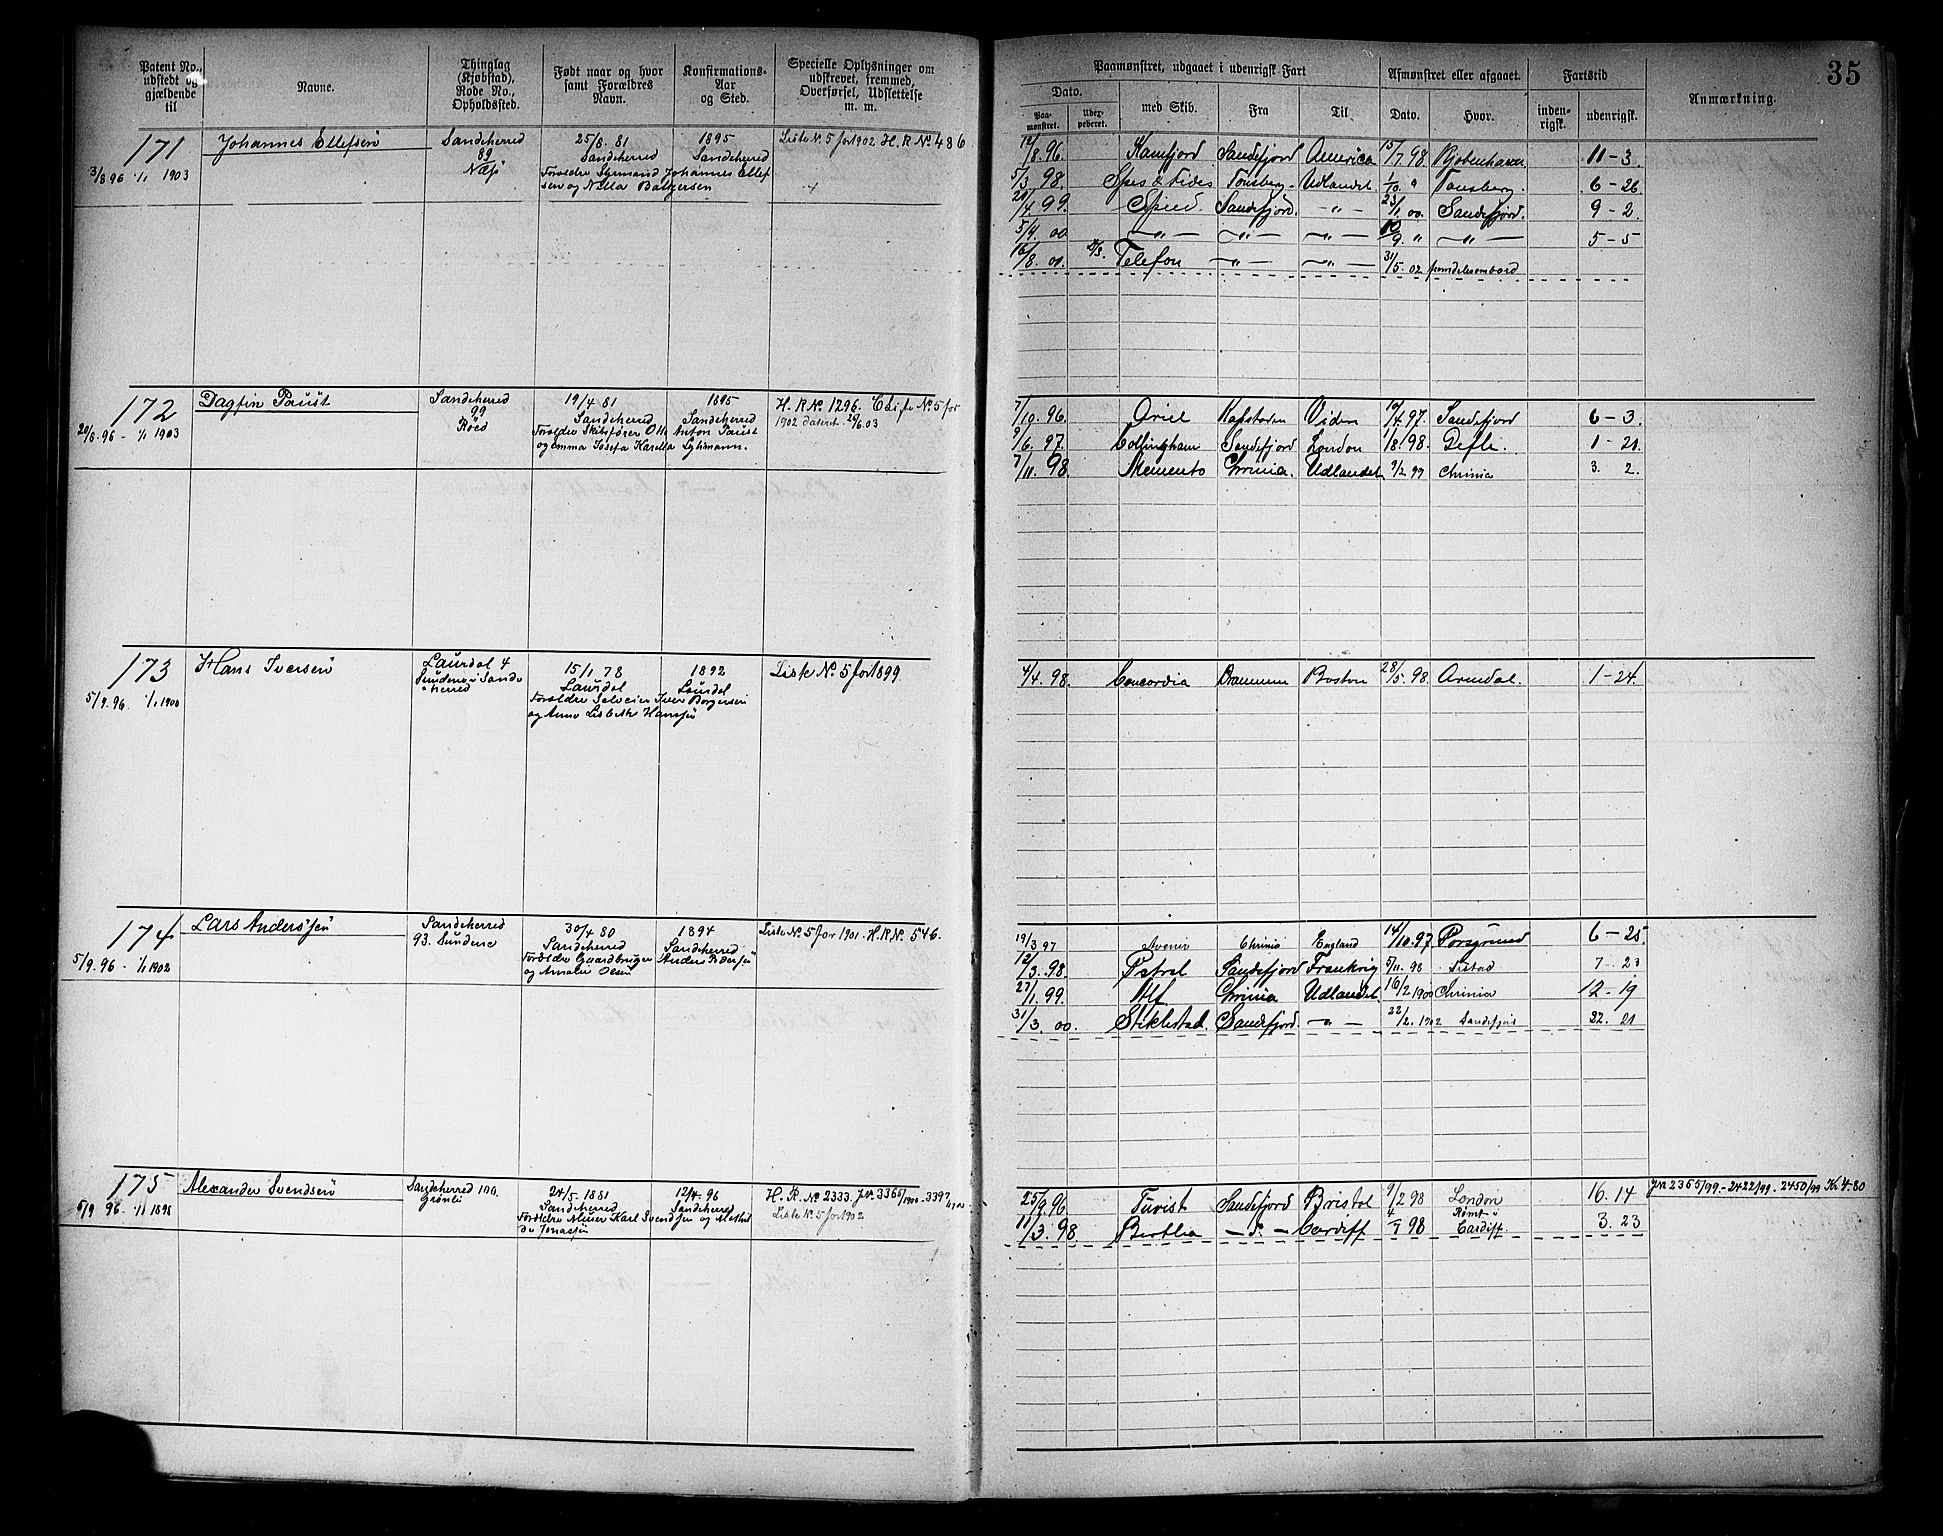 35
Patent No., udstedt og gjældende til
Navne.
Thinglag (Kjøbstad), Rode No., Opholdssted.
Født naar og hvor samt Forældres Navn.
Konfirmations-Aar og Sted.
Specielle Oplysninger om udskrevet, fremmed, Overførsel, Udslettelse m. m.
Paamønstret, udgaaet i udenrigsk Fart
Afmønstret eller afgaaet.
Fartstid
Anmærkning.
Dato.
Paa-monstret.
Udex-pederet.
med Skib.
Fra
Til
Dato.
Hvor.
inden-rigsk.
udenrigsk.
171 Johannes Ellefsen Sandeherred 25/8. 81 1895 Liste No. 5 for 1902 H. R. No. 486
89 Sandeherred Sandeherred
3/8 96 1/1 1903 Næs Forældre Sømand Johannes Ellef
sen og
12/8. 96. Sandefjord America 15/7. 98 Kjøbenhavn 11-3.
5/3. 98. Spes & Fides Tønsberg. Udlandet. 1/10. " Tønsberg. 6-26
21/4. 99. Sandefjord. -"- 23/1. 00. Sandefjord. 9-2
5/4. 00 -"- -"- -"- 10/9. " -"- 5-5
Telefon -"- -"- 31/5. 02
172 Dagfin Paust Sandeherred 19/4 81 1895 H. R. No. 1296. Liste No. 5 for
99 Sandeherred Sandeherred 1902 datert 28/6.03
20/8. 96 - 1/1 1903 Forældre Skibsfører Otto Anton Paust
og Emma Josefa Karella
7/10. 96. Ariel Kapstaden 6-3.
9/6. 97. Collingham Sandefjord London 11/8 98. Gefle. 1-21.
7/11. 98 Memento Chrinia. Udlandet 9/2 99 Chrinia 3. 2.
173 Hans Iversen Laurdal 4 15/1. 78 1892 Liste No. 5 for 1899
Sundene i Sande Laurdal Laurdal
herred Iver Børgersen
5/9. 96. 1/1 1900 og Anne Lisbeth Hansen
4/4. 98. Concordia Boston 28/5. 98. Arendal. 1-24.
174 Lars Andersen Sandeherred 30/4 80 1894 Liste No. 5 for 1901. H. R. No. 546.
93. Sundene Sandeherred Sandeherred
5/9. 96 - 1/1 1902 Forældre Gaardbruger Anders
og Amalie Olsen
19/3 97 Avenir Chrinia England 14/10. 97 Porsgrund 6-25
12/3. 98. Petrel Sandefjord Frankrig 5/11. 98 7-23
27/1. 99. Alf Chrinia Udlandet. 16/2 1900 Chrinia 12-19
31/3. 00. Stiklestad. Sandefjord. -"- 22/2. 1902 Sandefjord 22. 21
175 Alexander Svendsen Sandeherred 100. 24/5. 1881 12/4. 96 H. R. No 2333.
Sandeherred Sandeherred Liste No. 5 for 1902
5/9 96. 1/1 1898 Forældre Murer Karl Svendsen og Mathil
de Jonassen
25/9. 96 Turist Sandefjord Bristol 9/2 98 London 16. 14 Jn 2365/99. - 2422/99. 2450/99 Kr 4.80
11/3. 98. Bertha - d. - Cardiff 98 Rømt i Cardiff 3. 23